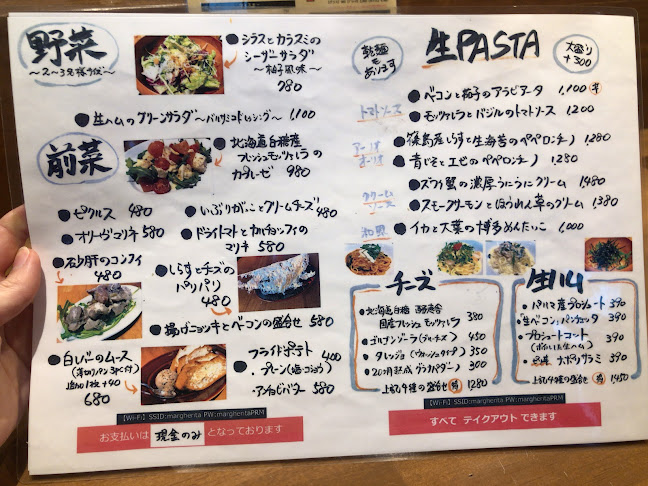 野菜
●シラスとカラスミの
シーザーサラダ
〜柚子風味〜
980
●生ハムのグリーンサラダ〜バルサミコドレッシング〜 1,100
前菜
●北海道白糠産
フレッシュモッツァレラの
カプレーゼ 980
●ピクルス 480
●いぶりがっことクリームチーズ 480
●オリーヴマリネ 580
●ドライトマトとカルチョッフィの
マリネ 580
●砂肝のコンフィ
480
●しらすとチーズの
パリパリ
480
●揚げニョッキとベーコンの盛合せ 580
●白レバーのムース
(薄切りパン3枚付)
追加1枚+90
680
●フライドポテト 400
・プレーン(塩・コショウ)
・アンチョビバター 500
【Wi-Fi】SSID:margherita PW:margheritaPRM
お支払いは 現金のみ となっております
乾麺も
あります
生PASTA
大盛り
+300
トマトソース
●ベーコンと茄子のアラビアータ 1,100
●モッツァレラとバジルのトマトソース 1,200
●篠島産しらすと生海苔のペペロンチーノ 1,280
●青じそとエビのペペロンチーノ 1,280
クリーム
ソース
●ズワイ蟹の濃厚うにうにクリーム 1,480
●スモークサーモンとほうれん草のクリーム 1,380
和風
●イカと大葉の博多めんたいこ 1,000
チーズ
・北海道白糠 酪恵舎
国産フレッシュモッツァレラ 380
・ゴルゴンゾーラ(ブルーチーズ) 450
・タレッジョ(ウォッシュタイプ) 350
・20ヶ月熟成 グラナパダーノ 300
上記4種の盛合せ 1280
生ハム
・パルマ産プロシュート 390
・"生ベーコン"パンチェッタ 390
・プロシュートコット 390
・ナポリサラミ 390
上記4種の盛合せ 1450
【Wi-Fi】SSID:margherita PW:margheritaPRM
すべて テイクアウト できます